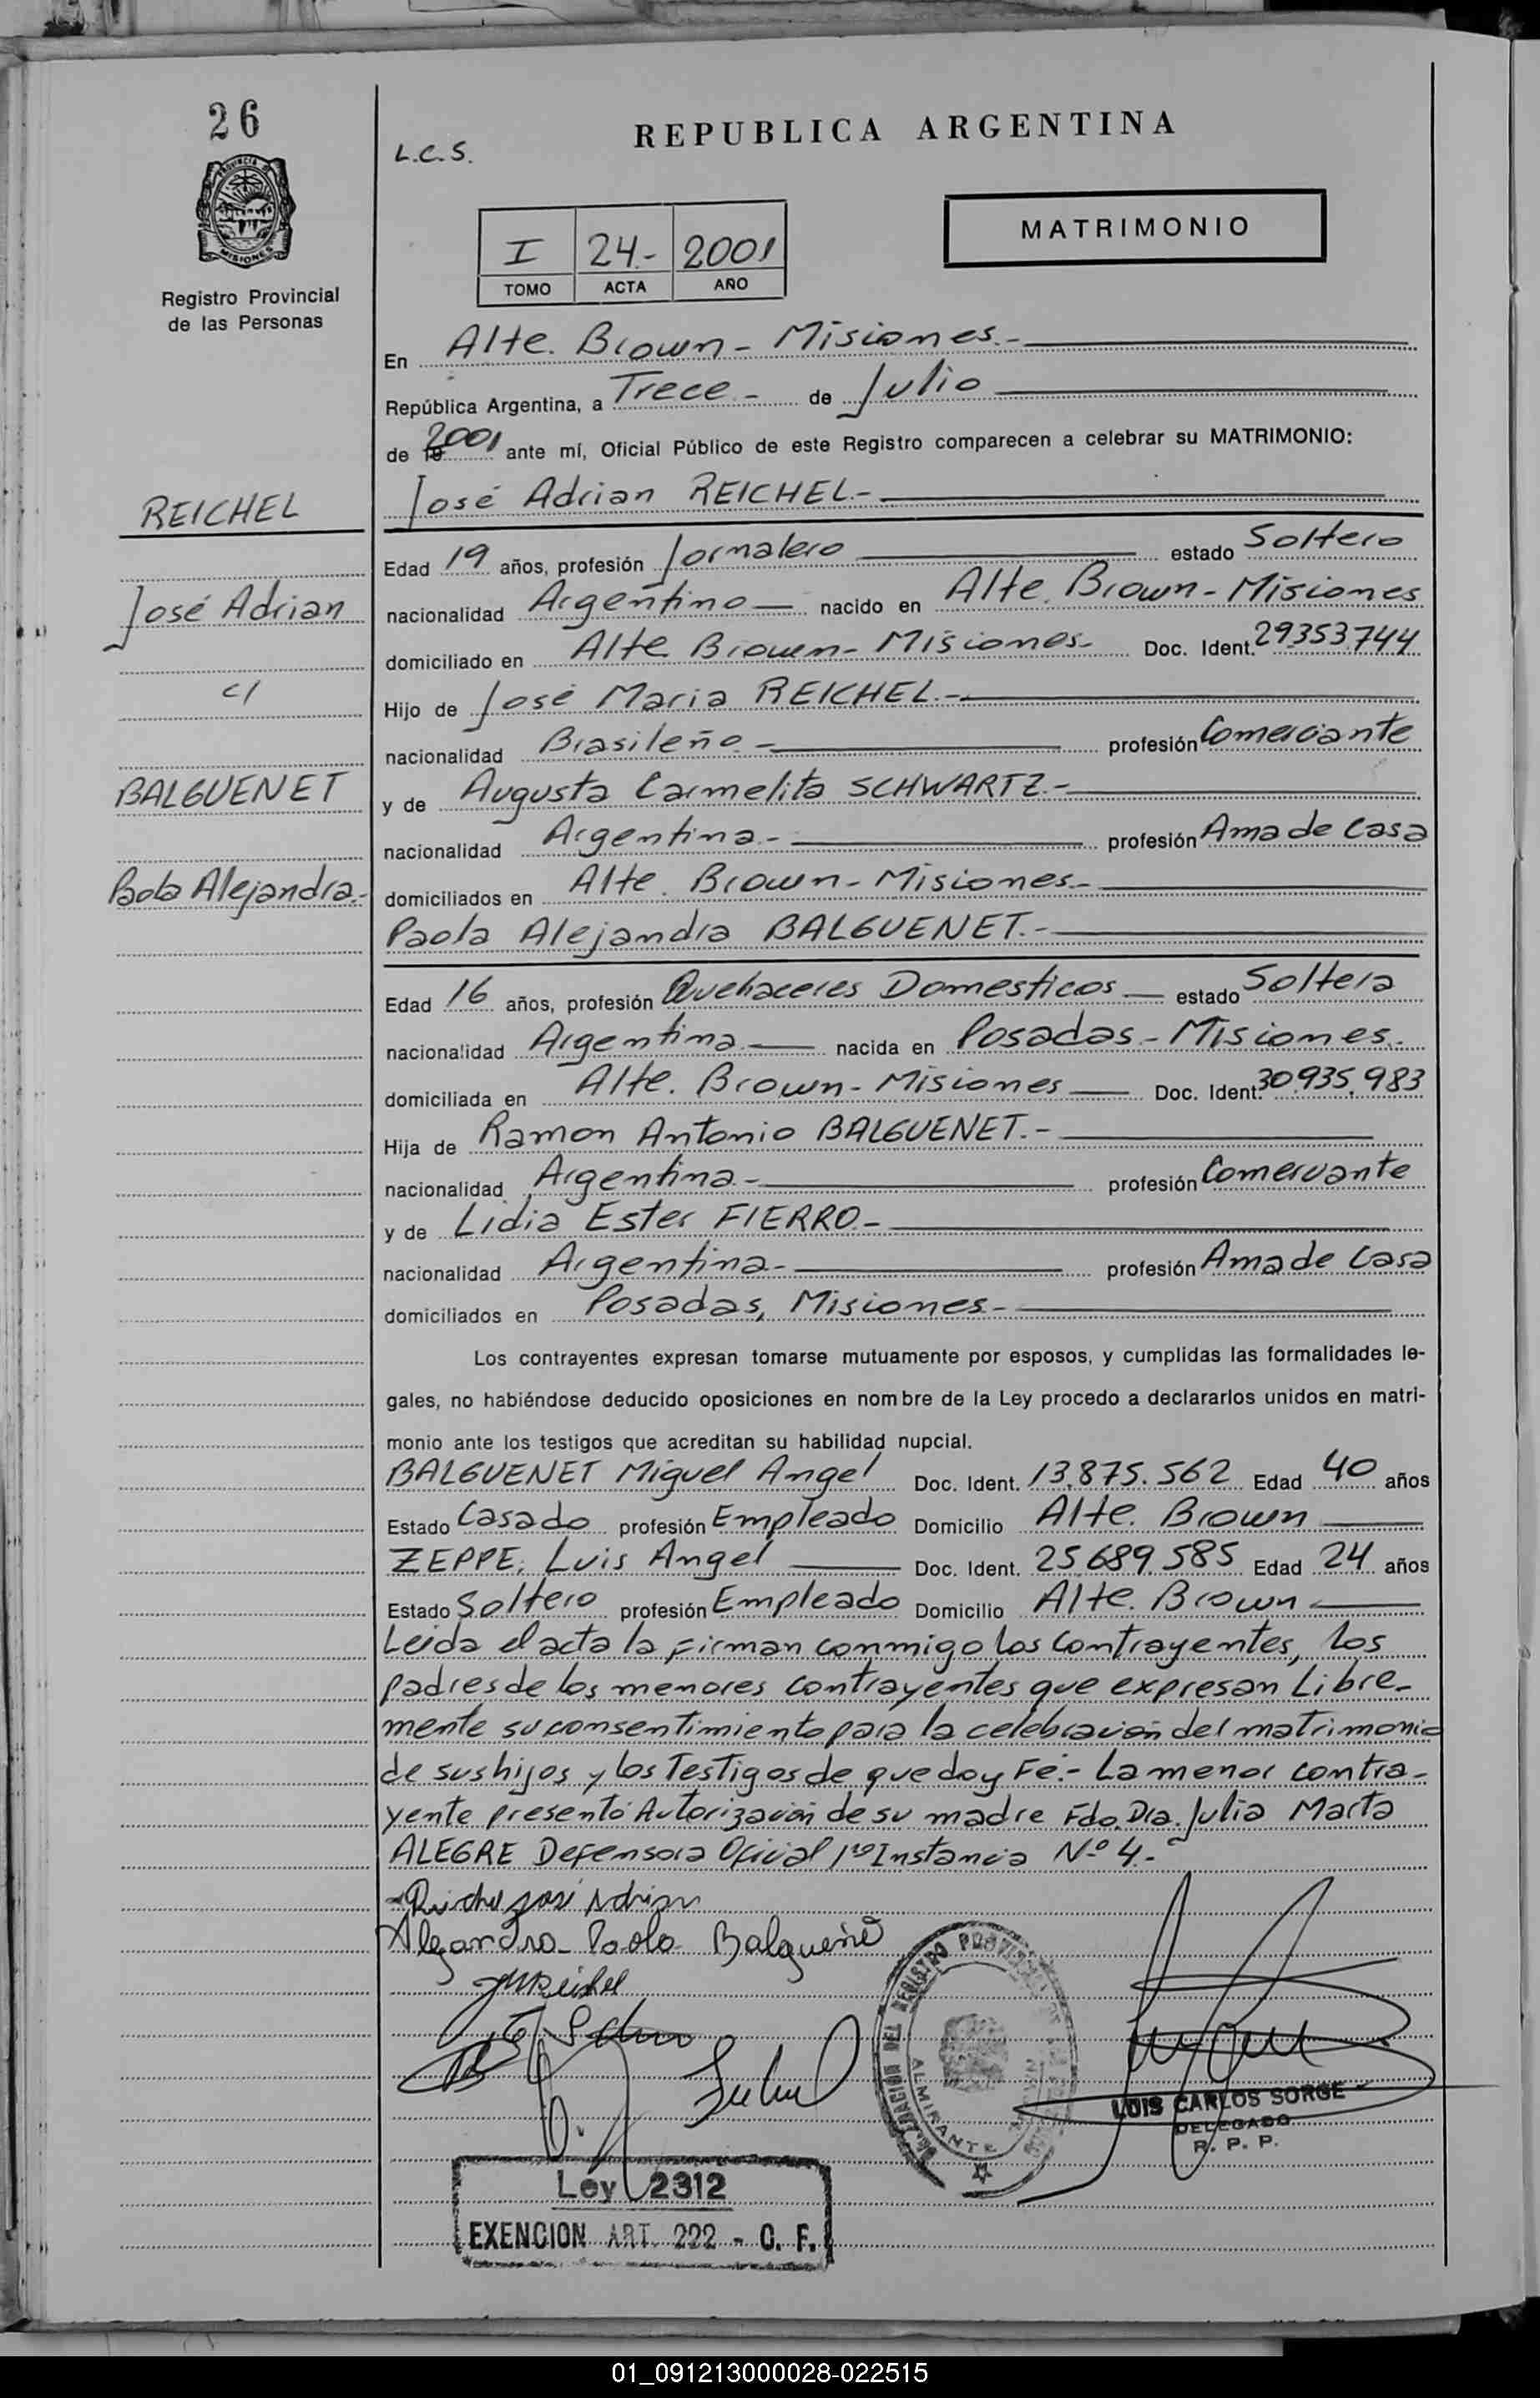 26
PROVINCIA DE
MISIONES
Registro Provincial
de las Personas
L.C.S.
REPUBLICA ARGENTINA
MATRIMONIO
I 24.- 2001
TOMO ACTA AÑO
En Alte. Brown - Misiones.-
República Argentina, a Trece.- de Julio
de 19 2001 ante mí, Oficial Público de este Registro comparecen a celebrar su MATRIMONIO:
REICHEL
José Adrian REICHEL.-
Edad 19 años, profesión Jornalero estado Soltero
José Adrian
nacionalidad Argentino nacido en Alte. Brown - Misiones
domiciliado en Alte. Brown - Misiones.- Doc. Ident. 29.353.744
c/
Hijo de José Maria REICHEL.-
nacionalidad Brasileño.- profesión Comerciante
BALGUENET
y de Augusta Carmelita SCHWARTZ.-
nacionalidad Argentina.- profesión Ama de Casa
Paola Alejandra.-
domiciliados en Alte. Brown - Misiones.-
Paola Alejandra BALGUENET.-
Edad 16 años, profesión Quehaceres Domesticos estado Soltera
nacionalidad Argentina nacida en Posadas - Misiones.
domiciliada en Alte. Brown - Misiones Doc. Ident. 30.935.983
Hija de Ramon Antonio BALGUENET.-
nacionalidad Argentina.- profesión Comerciante
y de Lidia Ester FIERRO.-
nacionalidad Argentina.- profesión Ama de Casa
domiciliados en Posadas, Misiones.-
Los contrayentes expresan tomarse mutuamente por esposos, y cumplidas las formalidades le-
gales, no habiéndose deducido oposiciones en nombre de la Ley procedo a declararlos unidos en matri-
monio ante los testigos que acreditan su habilidad nupcial.
BALGUENET Miguel Angel Doc. Ident. 13.875.562 Edad 40 años
Estado Casado profesión Empleado Domicilio Alte. Brown
ZEPPE, Luis Angel Doc. Ident. 25.689.585 Edad 24 años
Estado Soltero profesión Empleado Domicilio Alte. Brown
Leida el acta la Firman conmigo los Contrayentes, los
padres de los menores contrayentes que expresan Libre-
mente su consentimiento para la celebración del matrimonio
de sus hijos y los Testigos de que doy Fé.- La menor contra-
yente presentó Autorización de su madre Fdo. Dra. Julia Marta
ALEGRE Defensora Oficial 1ra Instancia Nº 4.-
José Adrian
Alejandra Paola Balguené
JMReichel
DELEGACION DEL REGISTRO PROVINCIAL DE LAS
ALMIRANTE
LUIS CARLOS SORGE
DELEGADO
R. P. P.
Ley 2312
EXENCION ART. 222 - C. F.
01_091213000028-022515